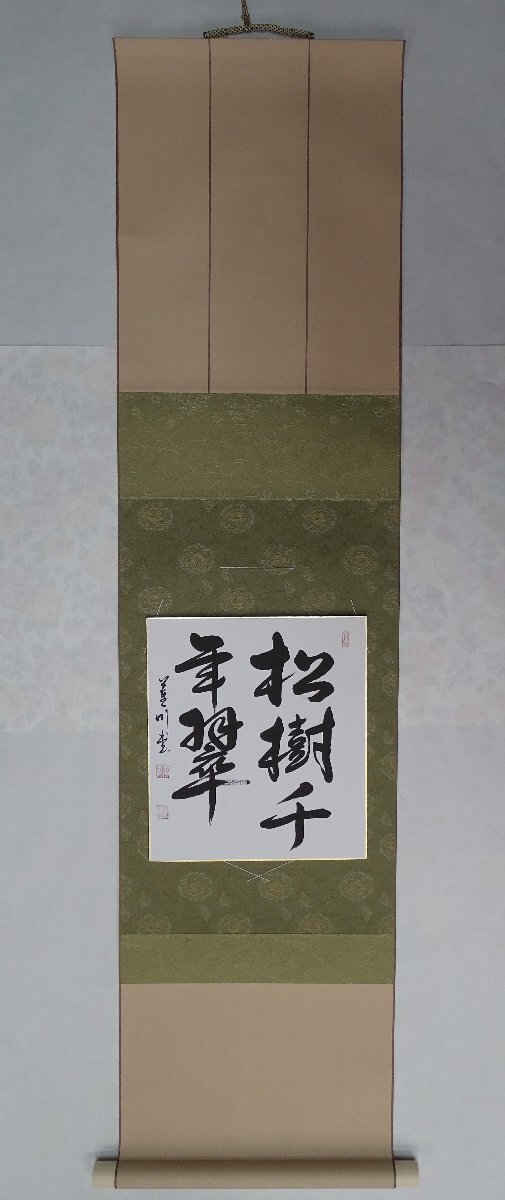 松樹千
年翠